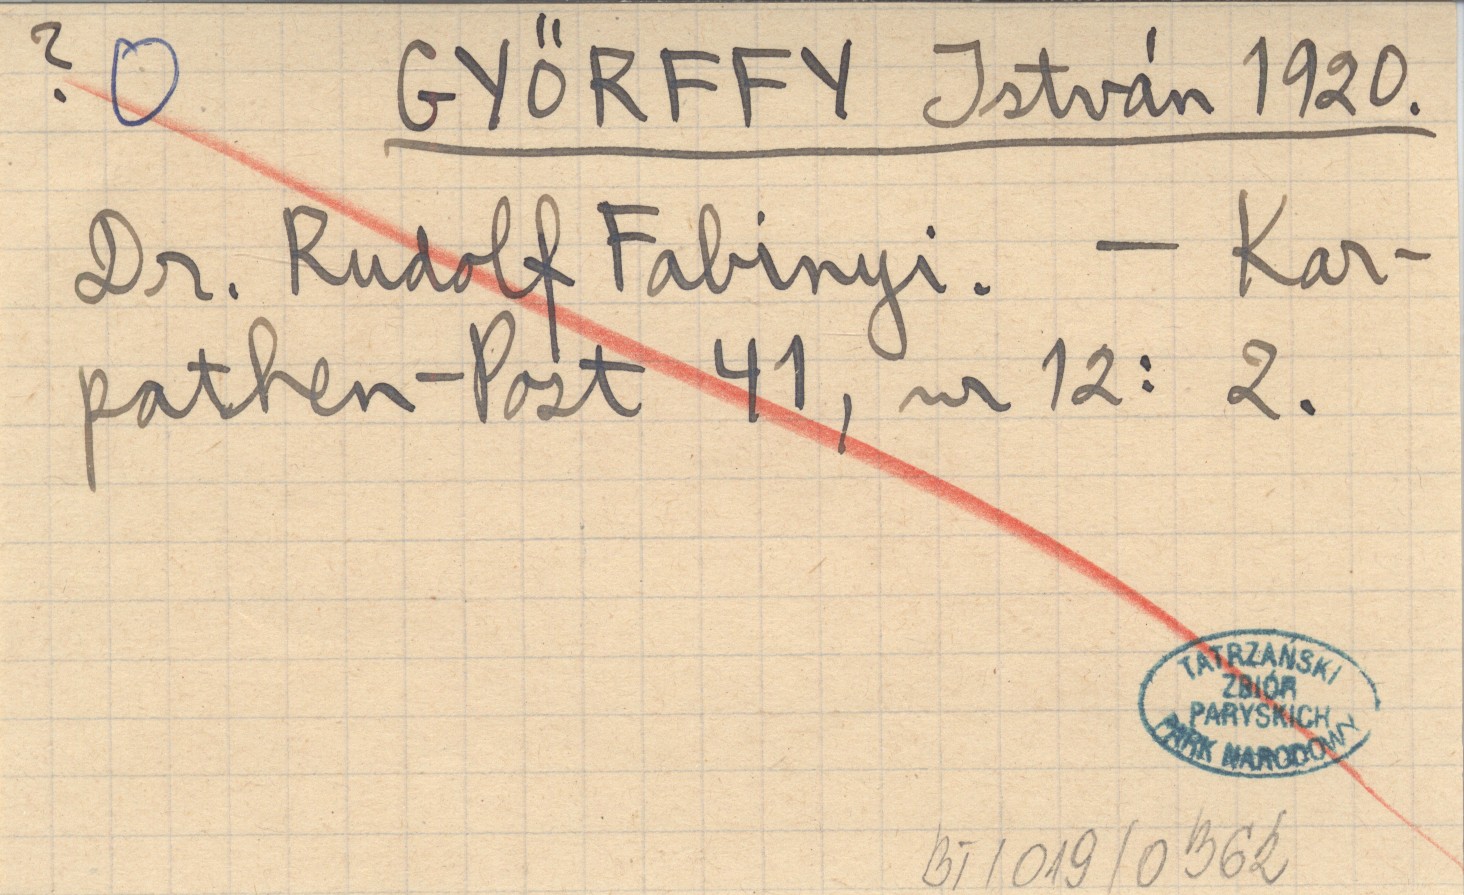 ? O GYŐRFFY István 1920.
Dr. Rudolf Fabinyi. — Kar-
pathen-Post 41, nr 12: 2.
TATRZAŃSKI
ZBIÓR
PARYSKICH
PARK NARODOWY
BT/019/0362